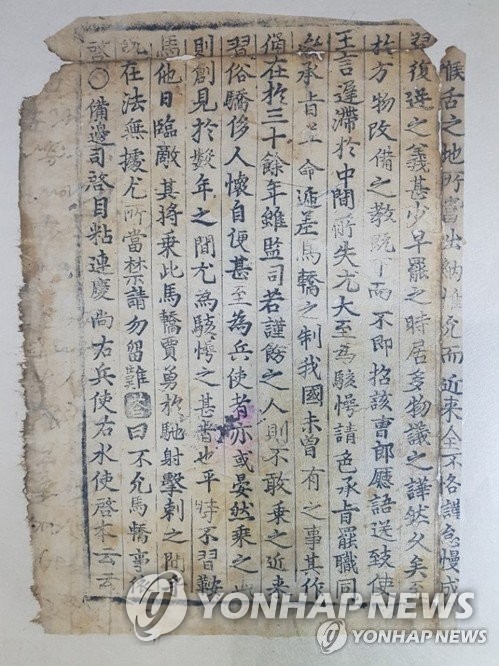 喉舌之地所當出納惟允而近來全不恪謹怠慢成
習復逆之義甚少早罷之時居多物議之譁然久矣
於方物改備之教旣下而不即招該曹郎廳語送致使
王言遲滯於中間所失尤大至為駭愕請色承旨罷職同
承旨並命遞差馬轎之制我國未曾有之事其作
俑在於三十餘年雖監司若謹飭之人則不敢乘之近來
習俗驕侈人懷自便甚至為兵使者亦或晏然乘之
則創見於數年之間尤為駭愕之甚者也平時不習鞍
馬他日臨敵其將乘此馬轎賈勇於馳射擊刺之間
況在法無據尤所當禁請勿留難答曰不允馬轎事
啓○備邊司啓目粘連慶尚右兵使右水使啓本云云
YONHAP NEWS
YONHAP NEWS